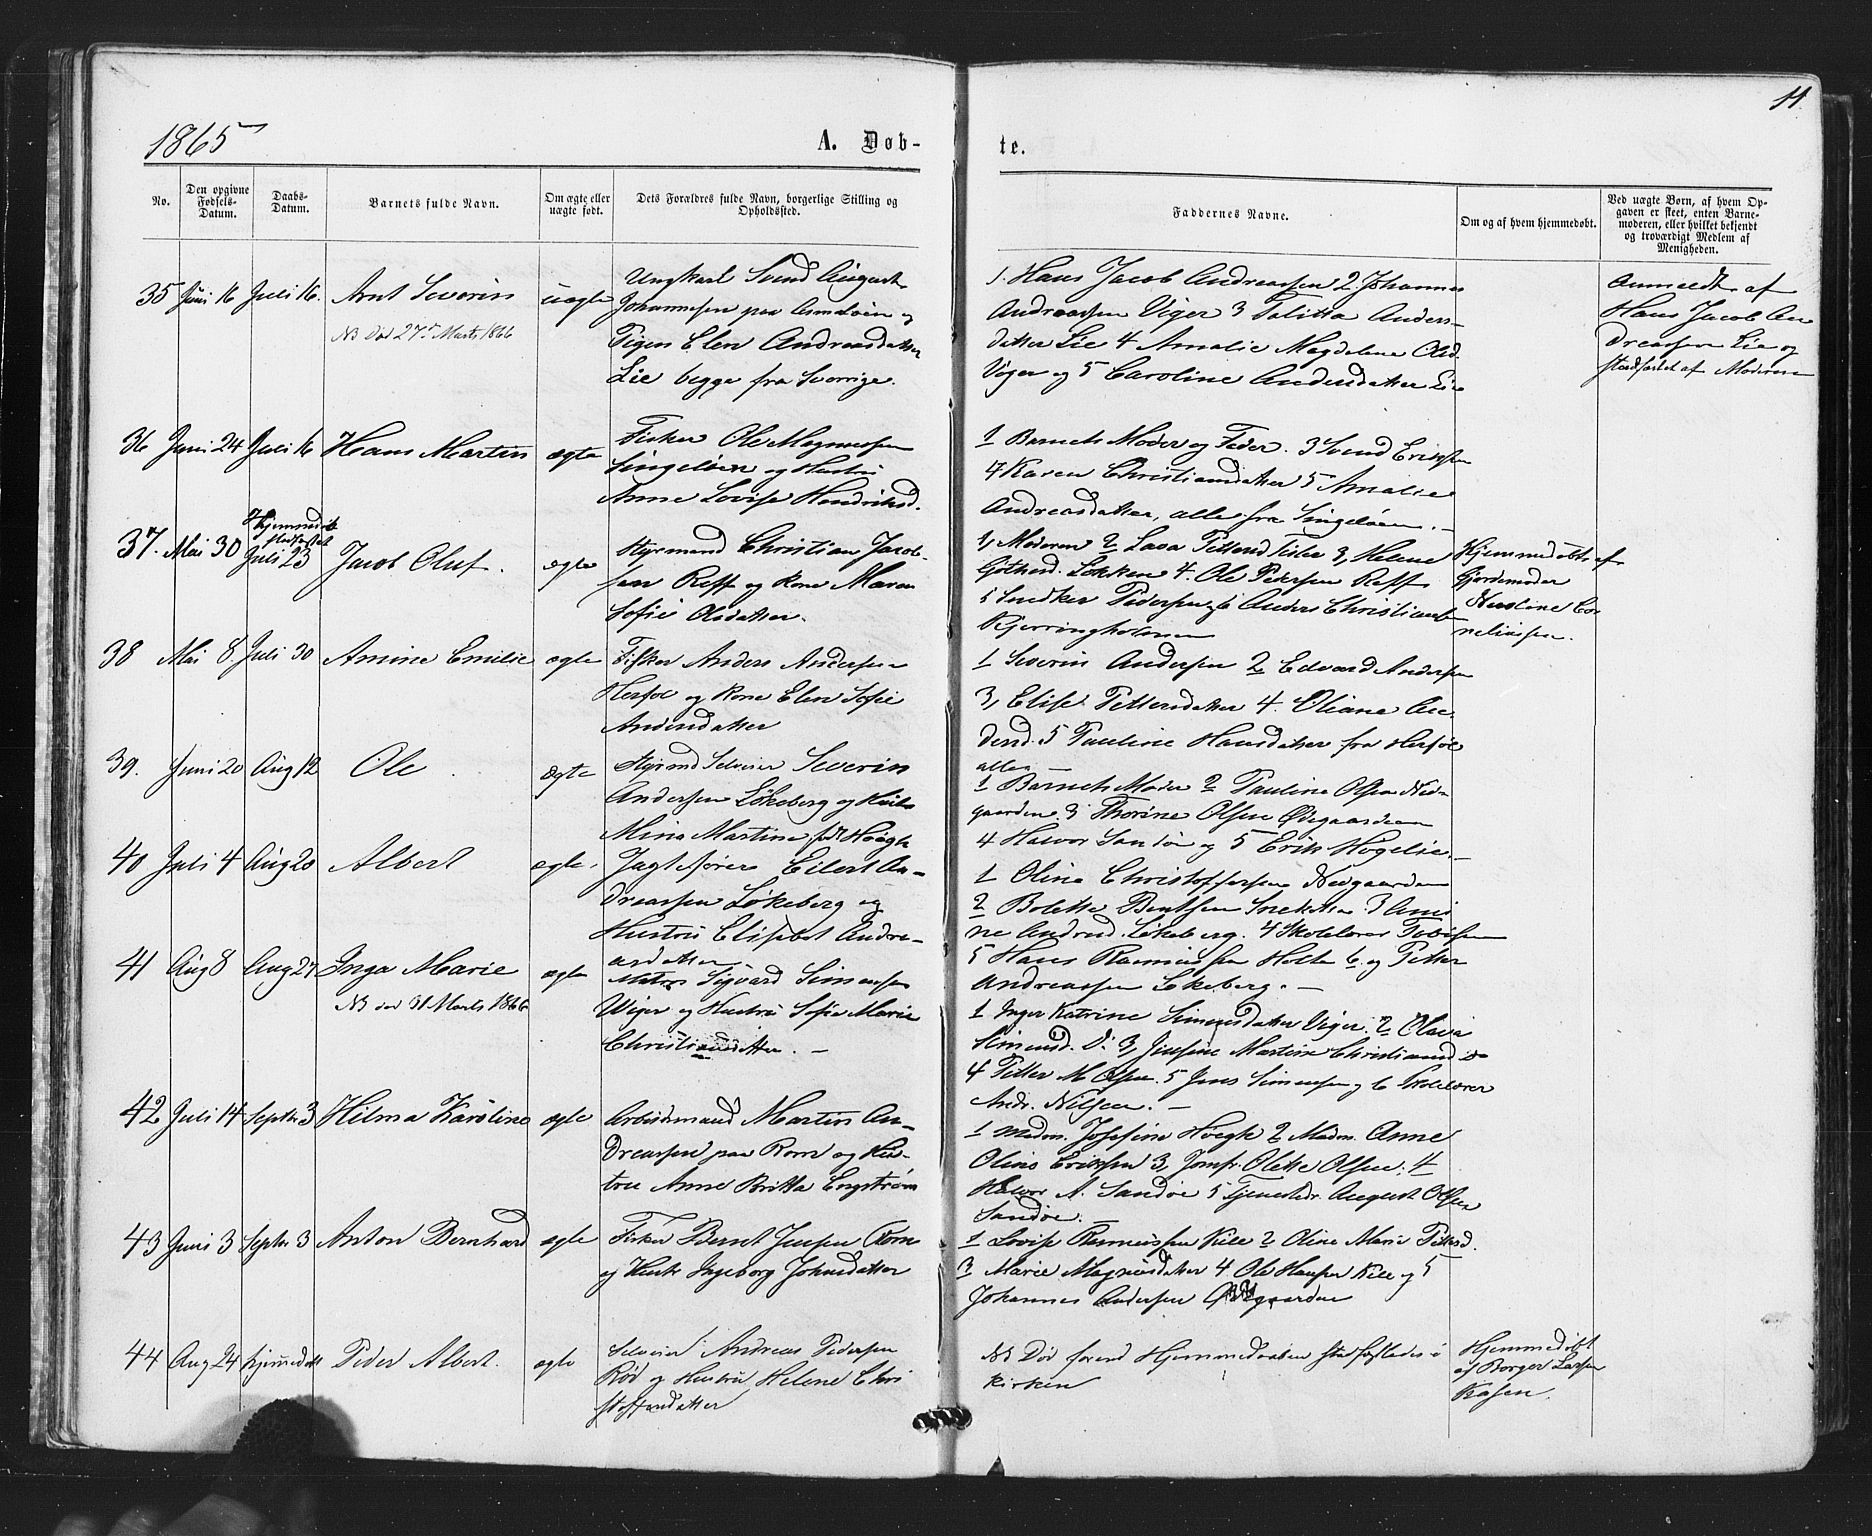 11
1865
A. Døb-
te.
No.
Den opgivne Fødsels-Datum.
Daabs-Datum.
Barnets fulde Navn.
Om ægte eller uægte født.
Dets Forældres fulde Navn, borgerlige Stilling og Opholdssted.
Faddernes Navne.
Om og af hvem hjemmedøbt.
Ved uægte Børn, af hvem Opgaven er skeet, enten Barnemoderen, eller hvilket bekjendt og troværdigt Medlem af Menigheden.
35 Juni 16 Juli 16. Arnt Severin uægte
NB Død 27de Marts 1866
Ungkarl Svend August
Johannesen paa Asmaløen og
Pigen Elen Andreasdatter
Lie begge fra Sverrige.
1. Hans Jacob Andreassen 2 Johannes
Andreassen Viger 3 Talitta Anders-
datter Lie 4 Amalie Magdelene Olsd.
Viger og 5 Caroline Andersdatter Lie
Anmeldt af
Hans Jacob An
dreassen Lie og
stadfæstet af Moderen
36 Juni 24 Juli 16 Hans Martin ægte
Fisker Ole Magnussen
Singeløen og Hustru
Anne Lovise Hendriksd.
1 Barnets Moder og Fader. 3 Svend Eriksen
4 Karen Christiansdatter 5 Amalie
Andreasdatter, alle fra Singeløen. -
37. Mai 30 Hjemmedøbt
stadfæstet
Juli 23 Jacob Oluf. ægte
Styrmand Christian Jacob-
sen Reff og Kone Maren
Sofie Olsdatter.
1, Moderen 2 Lava Pettersd 3, Helene
Løkken 4. Ole Pedersen Reff
5 Snedker Pedersen og 6 Anders Christiansen
Kjerringholmen
Hjemmedøbt af
Gjordemoder
Cor
neliussen.
38 Mai 8. Juli 30 Amine Emilie ægte
Fisker Anders Andersen
Herføl og Kone Elen Sofie
Andersdatter
1 Severin Andersen 2 Edvard Andersen
3, Elise Pettersdatter 4. Oliane An
dersd. 5 Pauline Hansdatter fra Herføl
alle
39. Juni 20 Aug 12 Ole. ægte
Styrmd Selveier Severin
Andersen Løkeberg og
Mina Martine født Høegh
1 Barnets Moder 2 Pauline Olsen Ned-
gaarden 3 Thorine Olsen Ødegaarden
4 Halvor Sandø og 5 Erik Høgelie. -
40 Juli 4 Aug 20 Albert ægte.
Jagtefører Eilert An-
dreassen Løkeberg og
Hustru Elisabet Andre-
asdatter
1 Oline Christoffersen Nedgaarden
2 Bolette Bentsen 3 Ami
ne Andrsd. Løkeberg. 4 Skolelærer Tobisen
5 Hans Rasmussen Holte 6. og Petter
Andreassen Løkeberg. -
41 Aug 8 Aug 27 Inga Marie ægte
NB død 31 Marts 1866
Matros Sigvard Simensen
Wiger og Hustru Sofie Marie
Christiansdatter. -
1 Inger Katrine Simensdatter Viger. 2 Olava
Simensd. D: 3, Josefine Martine Christiansd do
4 Petter M Olsen. 5 Jens Simensen og 6 Skolelærer
Andr. Nilsen. -
42 Juli 14 Septbr 3 Hilma Karoline ægte
Arbeidsmand Martin An-
dreassen paa Rom og Hus-
tru Anne Britta Engstrøm
1 Madm. Josefine Høegh 2 Madm. Anne
Olivia Eriksen 3, Jomfr. Olette Olsen. 4
Halvor A. Sandøe 5 Tjenestedr. August Olsen
Sandøe.
43 Juni 3 Septbr 3 Anton Bernhard ægte
Fisker Bernt Jensen Rom
og Hustr Ingeborg Johnsdatter
1 Lovise Rasmussen Kile 2 Oline Marie Pettersd.
3 Marie Magnusdatter 4 Ole Hansen Kile og 5
Johannes Andersen Ødegaarden
44 Aug 24 Hjemmedøbt Peder Albert. ægte
Selveier Andreas Pedersen
Rød og Hustru Helene Chri
stoffersdatter
NB Død førend Hjemmedaaben stadfæstedes i
Kirken
Hjemmedøbt
af Borger Larsen
Kasen.